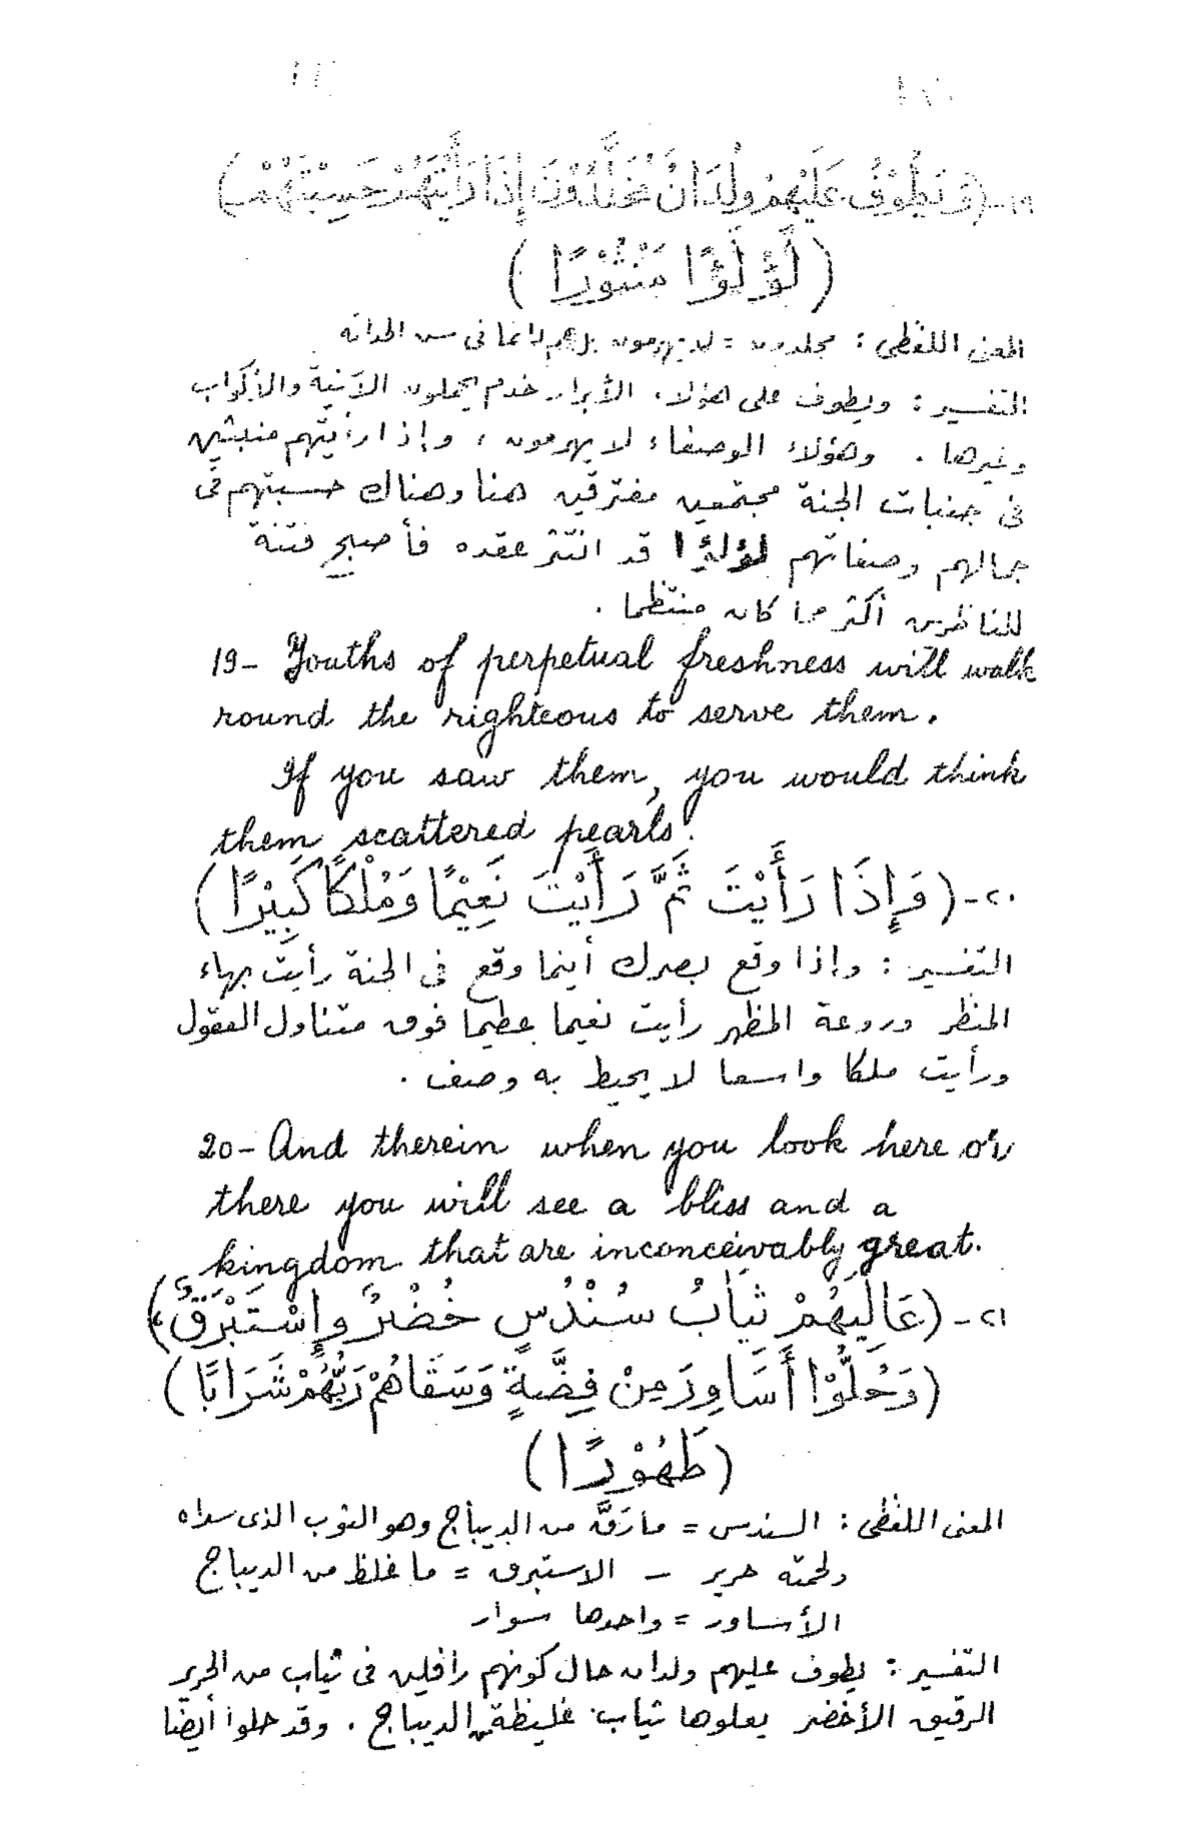 ١٩-(وَيَطُوْفُ عَلَيْهِمْ وِلْدَانٌ مُخَلَّدُوْنَ إِذَا رَأَيْتَهُمْ حَسِبْتَهُمْ)
(لُؤْلُؤًا مَنْثُوْرًا)
المعنى اللفظى : مخلدون = لا يهرمون بل هم دائما فى سن الحداثة
التفسير : ويطوف على هؤلاء الأبرار خدم يحملون الآنية والأكواب
وغيرها . وهؤلاء الوصفاء لا يهرمون ، وإذا رأيتهم منبثين
فى جنبات الجنة مجتمعين مفترقين هنا وهناك حسبتهم فى
جمالهم وصفائهم لؤلؤا قد انتثر عقده فأصبح فتنة
للناظرين أكثر مما كان منتظما .
19- Youths of perpetual freshness will walk
round the righteous to serve them.
If you saw them, you would think
them scattered pearls.
٢٠-(وَإِذَا رَأَيْتَ ثَمَّ رَأَيْتَ نَعِيْمًا وَمُلْكًا كَبِيْرًا)
التفسير : وإذا وقع بصرك أينما وقع فى الجنة رأيت بهاء
المنظر وروعة المظهر رأيت نعيما عظيما فوق متناول العقول
ورأيت ملكا واسعا لا يحيط به وصف .
20- And therein when you look here or
there you will see a bliss and a
kingdom that are inconceivably great.
٢١-(عَالِيَهُمْ ثِيَابُ سُنْدُسٍ خُضْرٌ وَإِسْتَبْرَقٌ)
(وَحُلُّوْا أَسَاوِرَ مِنْ فِضَّةٍ وَسَقَاهُمْ رَبُّهُمْ شَرَابًا)
(طَهُوْرًا)
المعنى اللفظى : السندس = ما رَقَّ من الديباج وهو الثوب الذى سداه
ولحمته حرير – الاستبرق = ما غلظ من الديباج
الأساور = واحدها سوار
التفسير : يطوف عليهم ولدان حال كونهم رافلين فى ثياب من الحرير
الرقيق الأخضر يعلوها ثياب غليظة من الديباج . وقد حلوا أيضا